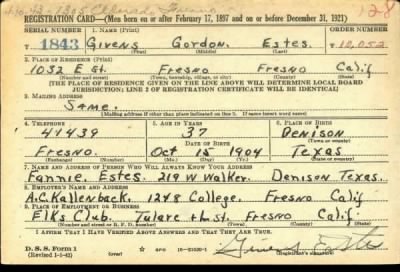 REGISTRATION CARD—(Men born on or after February 17, 1897 and on or before December 31, 1921)
28
SERIAL NUMBER 1. NAME (Print) ORDER NUMBER
T 1843 Givens Gordon. Estes. T 10,052
(First) (Middle) (Last)
2. PLACE OF RESIDENCE (Print)
1032 E St. Fresno Fresno Calif
(Number and street) (Town, township, village, or city) (County) (State)
[THE PLACE OF RESIDENCE GIVEN ON THE LINE ABOVE WILL DETERMINE LOCAL BOARD
JURISDICTION; LINE 2 OF REGISTRATION CERTIFICATE WILL BE IDENTICAL]
3. MAILING ADDRESS
Same.
[Mailing address if other than place indicated on line 2. If same insert word same]
4. TELEPHONE 5. AGE IN YEARS 6. PLACE OF BIRTH
41439 37 Denison
DATE OF BIRTH (Town or county)
Fresno. Oct 15 1904 Texas.
(Exchange) (Number) (Mo.) (Day) (Yr.) (State or country)
7. NAME AND ADDRESS OF PERSON WHO WILL ALWAYS KNOW YOUR ADDRESS
Fannie. Estes. 219 W Walker. Denison Texas.
8. EMPLOYER'S NAME AND ADDRESS
A.C. Kallenback. 1248 College. Fresno Calif
9. PLACE OF EMPLOYMENT OR BUSINESS
Elks Club. Tulare + H st. Fresno Calif.
(Number and street or R. F. D. number) (Town) (County) (State)
I AFFIRM THAT I HAVE VERIFIED ABOVE ANSWERS AND THAT THEY ARE TRUE.
D. S. S. Form 1
(Revised 1-1-42)
GPO 16-21630-1